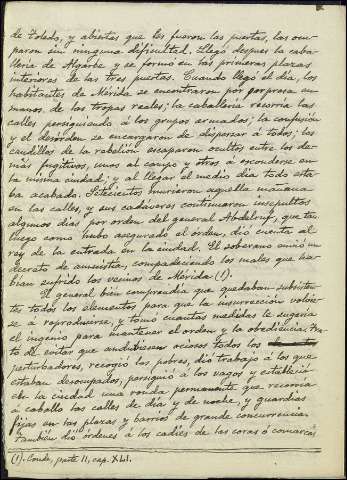 de Toledo, y abiertas que les fueron las puertas, las ocu-
paron sin ninguna dificultad. Llegó despues la caba-
lleria de Algarbe y se formó en las primeras plazas
interiores de las tres puertas. Cuando llegó el dia, los
habitantes de Mérida se encontraron por sorpresa en
manos de las tropas reales; la caballería recorría las
calles persiguiendo á los grupos armados; la confusión
y el desórden se encargaron de dispersar á todos; los
caudillos de la rebelión escaparon ocultos entre los de-
más fugitivos, unos al campo y otros á esconderse en
la misma ciudad; y al llegar el medio dia todo esta-
ba acabado. Setecientos murieron aquella mañana
en las calles, y sus cadáveres continuaron insepultos
algunos dias por orden del general Abdelruf, que tan
luego como hubo asegurado el orden, dió cuenta al
rey de la entrada en la ciudad. El soberano envió un
decreto de amnistia, compadeciendo los males que ha-
bian sufrido los vecinos de Mérida (1).
El general bien comprendia que quedaban subsisten-
tes todos los elementos para que la insurrección volvie-
se á reproducirse, y tomó cuantas medidas le sugeria
el ingenio para mantener el orden y la obediencia. Pa-
ra evitar que anduviesen ociosos todos los
perturbadores, recogió los pobres, dió trabajo á los que
estaban desocupados, persiguió á los vagos y estableció
en la ciudad una ronda permanente que recorria
á caballo las calles de dia y de noche, y guardias
fijas en las plazas y barrios de grande concurrencia.
Tambien dió órdenes á los cadíes de las coras ó comarcas
(1). Conde, parte II, cap. XLI.